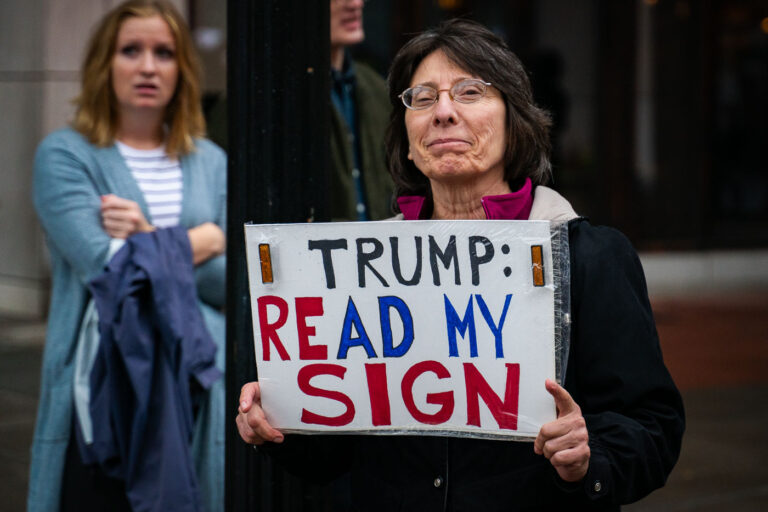 TRUMP:
READ MY
SIGN